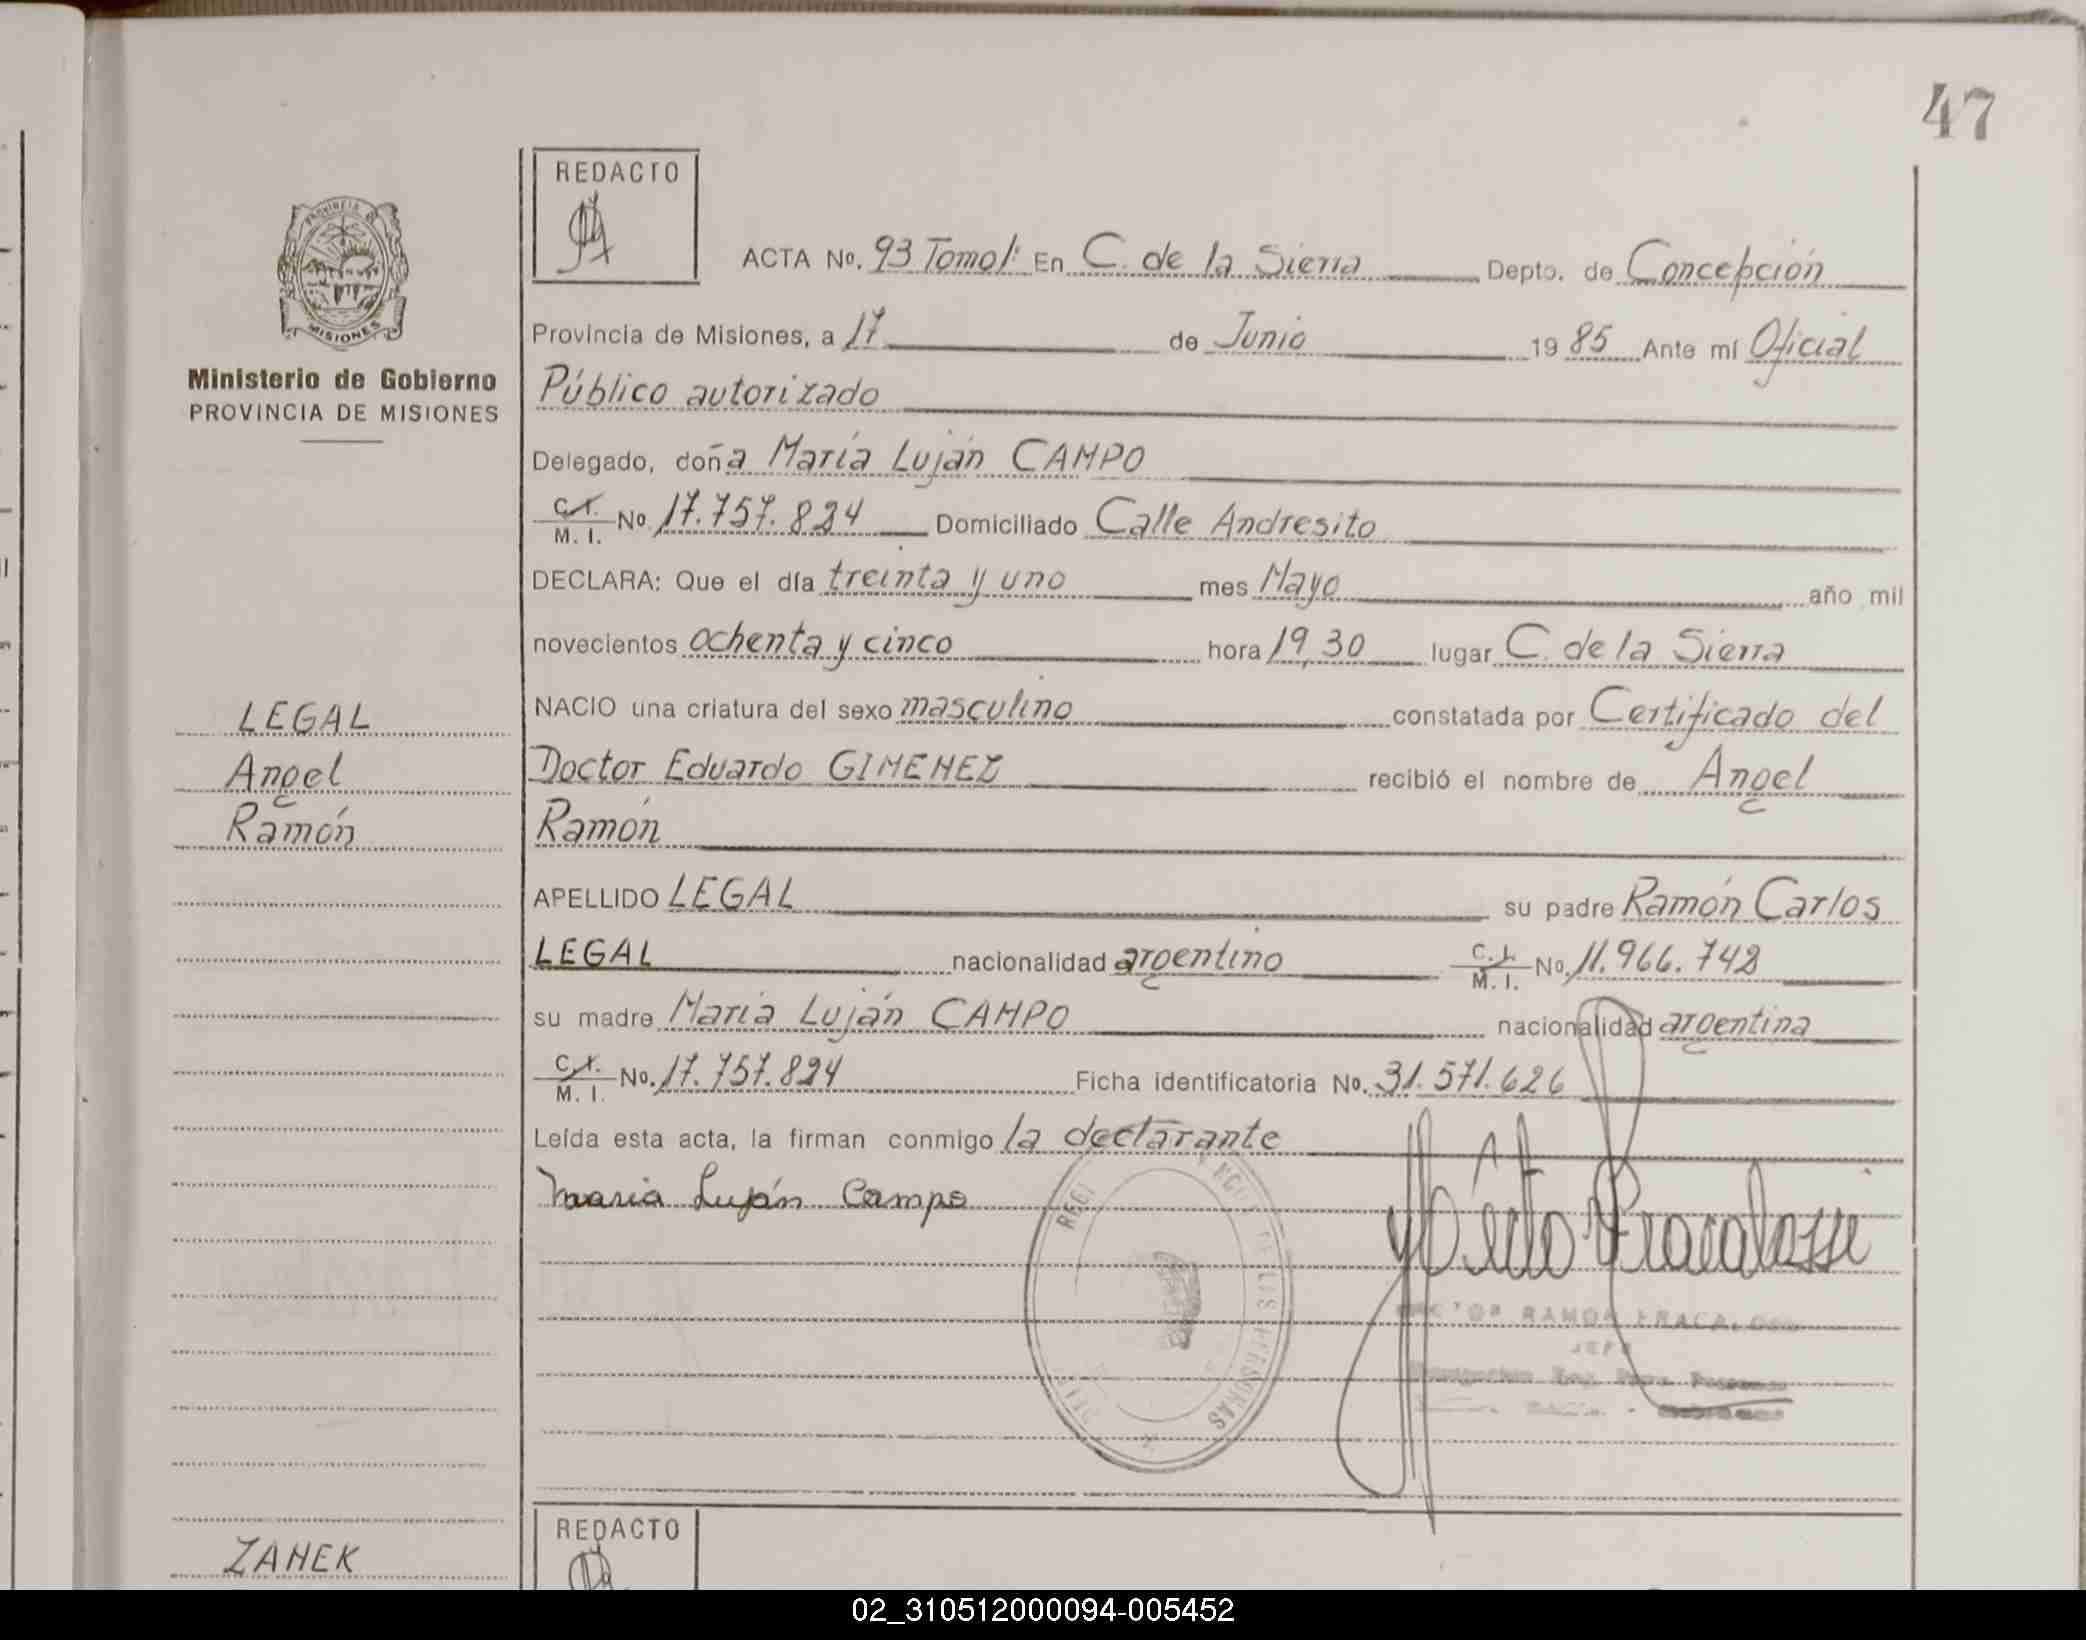 47
REDACTO
PROVINCIA DE
MISIONES
Ministerio de Gobierno
PROVINCIA DE MISIONES
ACTA No. 93 Tomo I: En C. de la Sierra Depto. de Concepción
Provincia de Misiones, a 17 de Junio 1985 Ante mí Oficial
Público autorizado
Delegado, doña María Luján CAMPO
C.I. M. I. No. 17.757.824 Domiciliado Calle Andresito
DECLARA: Que el día treinta y uno mes Mayo año mil
novecientos ochenta y cinco hora 19,30 lugar C. de la Sierra
NACIO una criatura del sexo masculino constatada por Certificado del
Doctor Eduardo GIMENEZ recibió el nombre de Angel
Ramón
LEGAL
Angel
Ramón
APELLIDO LEGAL su padre Ramón Carlos
LEGAL nacionalidad argentino C.I. M. I. No. 11.966.742
su madre María Luján CAMPO nacionalidad argentina
C.I. M. I. No. 17.757.824 Ficha identificatoria No. 31.571.626
Leída esta acta, la firman conmigo la declarante
Maria Luján Campo
DE LAS PERSONAS
RAMON FRACALOSSI
JEFE
REDACTO
ZANEK
02_310512000094-005452